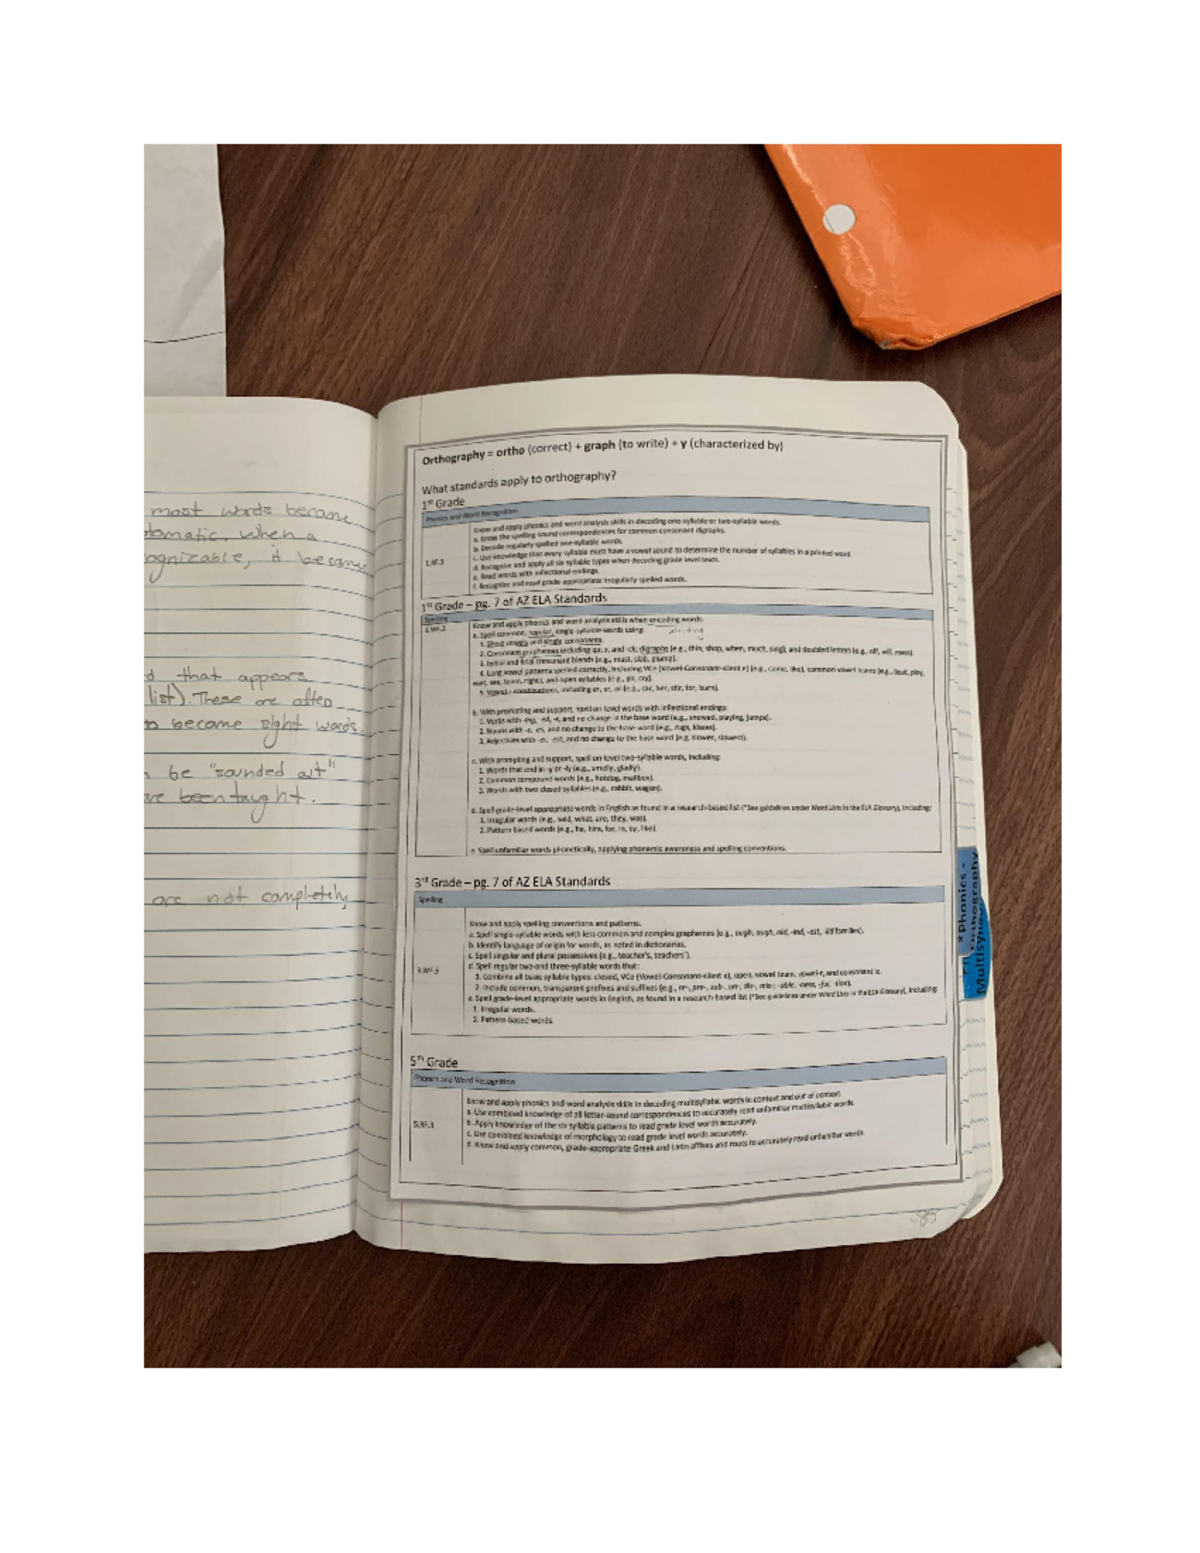 most words become
tomatic. When a
ognizable, it became
d that appears
list). These are often
become sight words
be "sounded out"
been taught.
are not completely
Orthography = ortho (correct) + graph (to write) + y (characterized by)
What standards apply to orthography?
1st Grade
Phonics and Word Recognition
Know and apply phonics and word analysis skills in decoding one-syllable or two-syllable words.
a. Know the spelling-sound correspondences for common consonant digraphs.
b. Decode regularly spelled one-syllable words.
c. Use knowledge that every syllable must have a vowel sound to determine the number of syllables in a printed word.
1.RF.3
d. Recognize and apply all six syllable types when decoding grade level texts.
e. Read words with inflectional endings.
f. Recognize and read grade-appropriate irregularly spelled words.
1st Grade – pg. 7 of AZ ELA Standards
Spelling
1.WF.3
Know and apply phonics and word analysis skills when encoding words.
a. Spell common, regular, single-syllable words using:
1. Short vowels and single consonants.
2. Consonant graphemes including qu, x, and -ck; digraphs (e.g., thin, shop, when, much, sing), and doubled letters (e.g., off, will, mess).
3. Initial and final consonant blends (e.g., must, slab, plump).
4. Long vowel patterns spelled correctly, including VCe (Vowel-Consonant-silent e) (e.g., came, like), common vowel teams (e.g., boat, play,
wait, see, team, right), and open syllables (e.g., go, cry).
5. Vowel-r combinations, including er, ar, or (e.g., car, her, stir, for, burn).
b. With prompting and support, spell on-level words with inflectional endings:
1. Verbs with -ing, -ed, -s, and no change in the base word (e.g., snowed, playing, jumps).
2. Nouns with -s, -es, and no change to the base word (e.g., rugs, kisses).
3. Adjectives with -er, -est, and no change to the base word (e.g. slower, slowest).
c. With prompting and support, spell on-level two-syllable words, including:
1. Words that end in -y or -ly (e.g., smelly, gladly).
2. Common compound words (e.g., hotdog, mailbox).
3. Words with two closed syllables (e.g., rabbit, wagon).
d. Spell grade-level appropriate words in English as found in a research-based list (*See guidelines under Word Lists in the ELA Glossary), including:
1. Irregular words (e.g., said, what, are, they, was).
2. Pattern based words (e.g., he, him, for, in, by, like).
e. Spell unfamiliar words phonetically, applying phonemic awareness and spelling conventions.
3rd Grade – pg. 7 of AZ ELA Standards
Spelling
Know and apply spelling conventions and patterns.
a. Spell single-syllable words with less common and complex graphemes (e.g., ough, augh, old, -ind, -ost, -ild families).
b. Identify language of origin for words, as noted in dictionaries.
c. Spell singular and plural possessives (e.g., teacher's, teachers').
d. Spell regular two-and three-syllable words that:
3.WF.3
1. Combine all basic syllable types: closed, VCe (Vowel-Consonant-silent e), open, vowel team, vowel-r, and consonant le.
2. Include common, transparent prefixes and suffixes (e.g., re-, pre-, sub-, un-, dis-, mis-; -able, -ness, -ful, -tion).
e. Spell grade-level appropriate words in English, as found in a research-based list (*See guidelines under Word Lists in the ELA Glossary), including:
1. Irregular words.
2. Pattern-based words.
5th Grade
Phonics and Word Recognition
Know and apply phonics and word analysis skills in decoding multisyllabic words in context and out of context.
a. Use combined knowledge of all letter-sound correspondences to accurately read unfamiliar multisyllabic words.
5.RF.3
b. Apply knowledge of the six syllable patterns to read grade level words accurately.
c. Use combined knowledge of morphology to read grade level words accurately.
d. Know and apply common, grade-appropriate Greek and Latin affixes and roots to accurately read unfamiliar words.
*Phonics -
Orthography
85